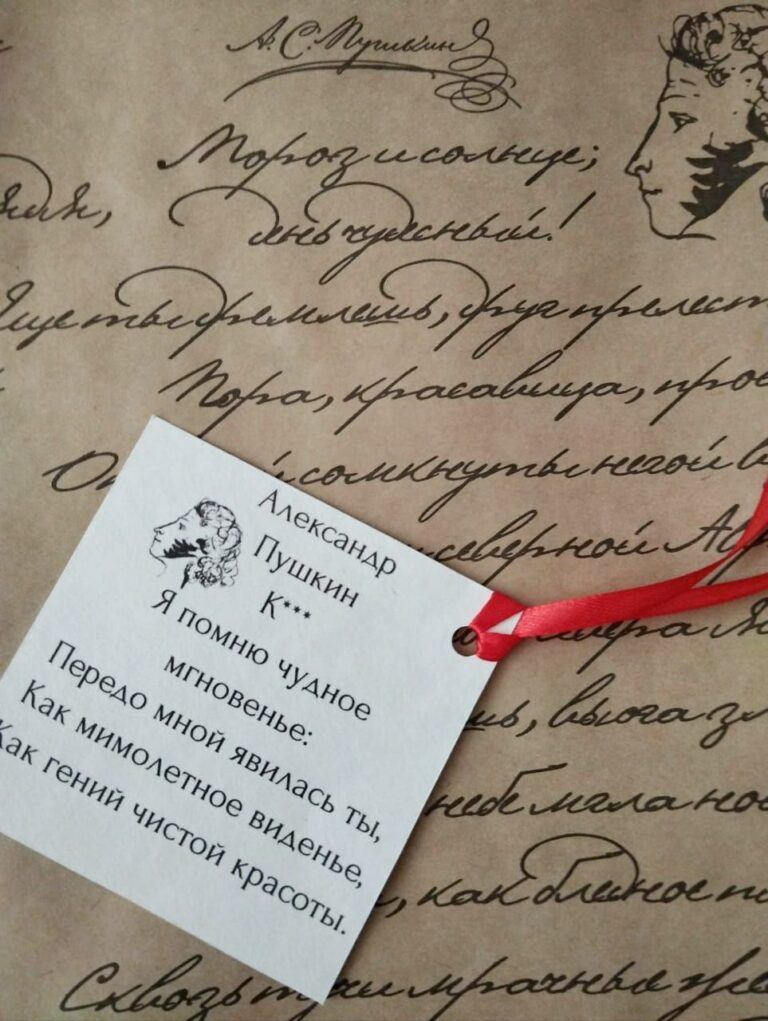 А.С. Пушкинъ
Мороз и солнце;
день чудесный!
Еще ты дремлешь, друг прелест
Пора, красавица, про
сомкнуты негой в
северной Ав
вьюга зл
небе мгла нос
, как бледное п
Сквозь тучи мрачные же
Александр
Пушкин
К***
Я помню чудное
мгновенье:
Передо мной явилась ты,
Как мимолетное виденье,
Как гений чистой красоты.